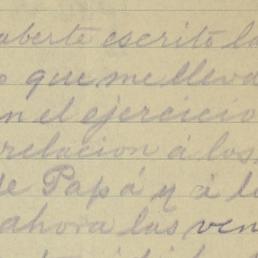 aberte escrito la
que me lleva
n el ejercicio
relacion á los
de Papá y á l
ahora las ven